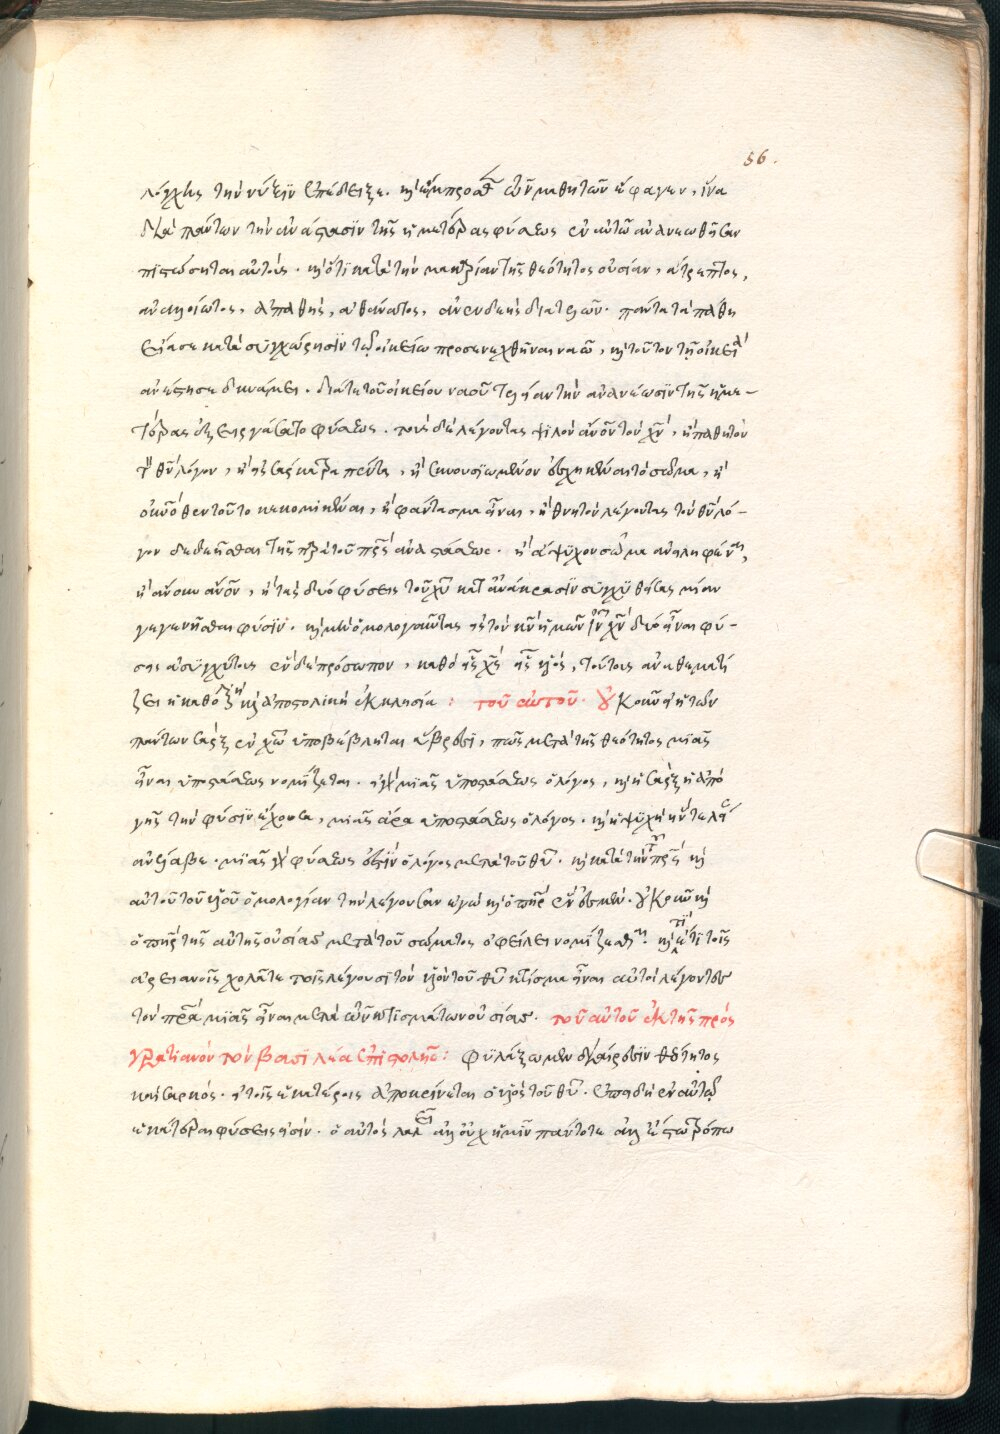 56.
λόγχης τὴν νύξιν ἐπέδειξε. καὶ ἔμπροσθεν τῶν μαθητῶν ἔφαγεν, ἵνα
διὰ πάντων τὴν ἀνάστασιν τῆς ἡμετέρας φύσεως ἐν αὐτῷ ἀνανεωθεῖσαν
πιστώσηται αὐτοῖς. καὶ ὅτι κατὰ τὴν μακαρίαν τῆς θεότητος οὐσίαν, ἄτρεπτος,
ἀναλλοίωτος, ἀπαθὴς, ἀθάνατος, ἀνενδεὴς διατελῶν. πάντα τὰ πάθη
εἴασε κατὰ συγχώρησιν τῷ οἰκείῳ προσενεχθῆναι ναῷ, καὶ τοῦτον τῇ οἰκείᾳ
ἀνέστησε δυνάμει. διά τε τοῦ οἰκείου ναοῦ τελείαν τὴν ἀνανέωσιν τῆς ἡμε-
τέρας ἐξειργάσατο φύσεως. τοὺς δὲ λέγοντας ψιλὸν ἄνον τὸν χν, ἢ παθητὸν
τὸν θν λόγον, ἢ εἰς σάρκα τραπέντα, ἢ συνουσιωμένον ἐσχηκέναι τὸ σῶμα, ἢ
οὐνόθεν τοῦτο κεκομικέναι, ἢ φάντασμα εἶναι, ἢ θνητὸν λέγοντας τὸν θν λό-
γον δεδεῆσθαι τῆς παρὰ τοῦ πρς ἀναστάσεως. ἢ ἄψυχον σῶμα ἀνειληφέναι,
ἢ ἄνουν ἄνον, ἢ τὰς δύο φύσεις τοῦ χυ κατ' ἀνάκρασιν συγχυθείσας μίαν
γεγενῆσθαι φύσιν. καὶ μὴ ὁμολογοῦντας τὸν κν ἡμῶν ιν χν δύο εἶναι φύ-
σεις ἀσυγχύτους ἓν δὲ πρόσωπον, καθὸ εἷς χς εἷς υἱός, τούτους ἀναθεματί
ζει ἡ καθολικὴ καὶ ἀποστολικὴ ἐκκλησία : τοῦ αὐτοῦ. οὐκοῦν εἰ ἡ τῶν
πάντων σὰρξ ἐν χω ὑποβέβληται ὕβρεσι, πῶς μετὰ τῆς θεότητος μιᾶς
εἶναι ὑποστάσεως νομίζεται. εἰ γὰρ μιᾶς ὑποστάσεως ὁ λόγος, καὶ ἡ σὰρξ ἡ ἀπὸ
γῆς τὴν φύσιν ἔχουσα, μιᾶς ἄρα ὑποστάσεως ὁ λόγος. καὶ ἡ ψυχὴ ἣν τελείαν
ἀνέλαβε. μιᾶς γὰρ φύσεως ἐστὶν ὁ λόγος μετὰ τοῦ θυ. καὶ κατὰ τὴν τοῦ πρς καὶ
αὐτοῦ τοῦ υἱοῦ ὁμολογίαν τὴν λέγουσαν ἐγὼ καὶ ὁ πηρ ἕν ἐσμεν. οὐκοῦν καὶ
ὁ πηρ τῆς αὐτῆς οὐσίας μετὰ τοῦ σώματος ὀφείλει νομίζεσθαι. καὶ τί ἔτι τοῖς
ἀρειανοῖς χολᾶτε τοῖς λέγουσι τὸν υἱὸν τοῦ θυ κτίσμα εἶναι αὐτοὶ λέγοντες
τὸν πρα μιᾶς εἶναι μετὰ τῶν κτισμάτων οὐσίας. τοῦ αὐτοῦ ἐκ τῆς πρὸς
γρατιανὸν τὸν βασιλέα ἐπιστολῆς : φυλάξωμεν διαίρεσιν θεότητος
καὶ σαρκός. ἐν τοῖς ἑκατέροις ἀποκρίνεται ὁ υἱὸς τοῦ θυ. ἐπειδὴ ἐν αὐτῷ
ἑκάτεραι φύσεις εἰσίν. ὁ αὐτὸς λαλεῖ ἀλλ' οὐχ' ἡμῖν πάντοτε ἀλλ' ἑνὶ τῷ τρόπῳ